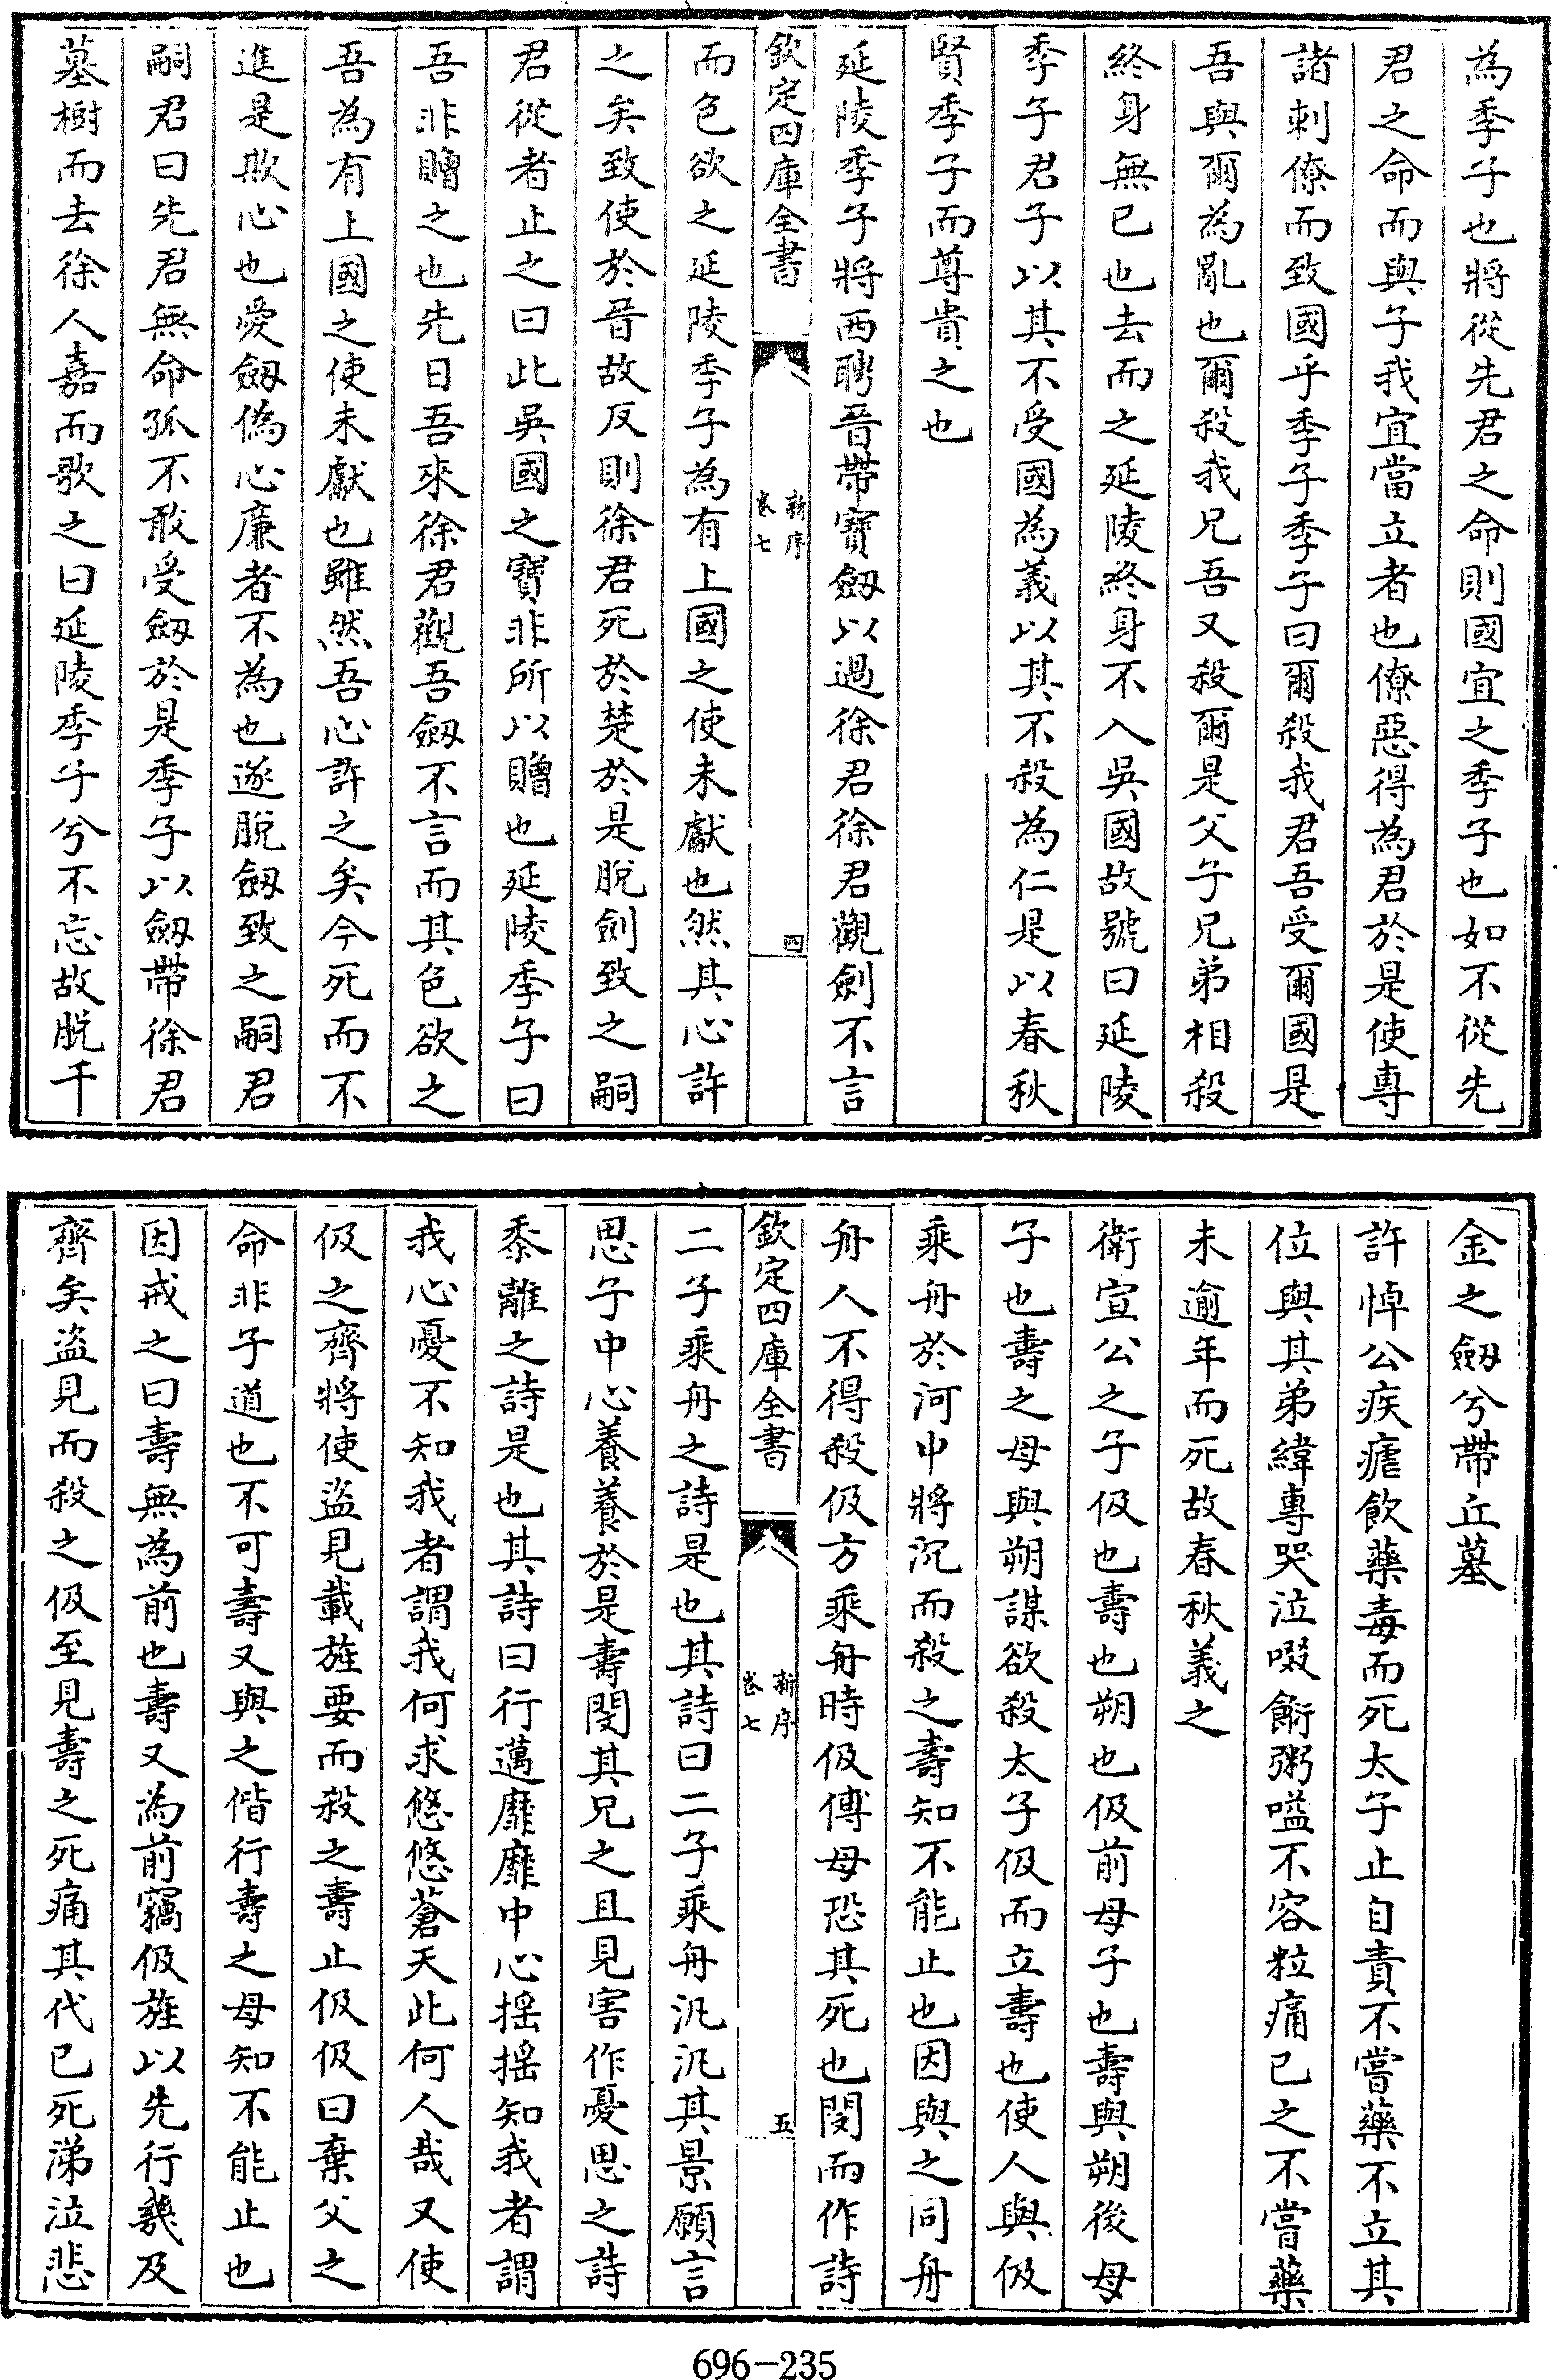 為季子也將從先君之命則國宜之季子也如不從先
君之命而與子我宜當立者也僚惡得為君於是使專
諸刺僚而致國乎季子季子曰爾殺我君吾受爾國是
吾與爾為亂也爾殺我兄吾又殺爾是父子兄弟相殺
終身無已也去而之延陵終身不入吳國故號曰延陵
季子君子以其不受國為義以其不殺為仁是以春秋
賢季子而尊貴之也
延陵季子將西聘晉帶寶劔以過徐君徐君觀劍不言
欽定四庫全書
新序
卷七
四
而色欲之延陵季子為有上國之使未獻也然其心許
之矣致使於晉故反則徐君死於楚於是脫劍致之嗣
君從者止之曰此吳國之寶非所以贈也延陵季子曰
吾非贈之也先日吾來徐君觀吾劔不言而其色欲之
吾為有上國之使未獻也雖然吾心許之矣今死而不
進是欺心也愛劔偽心廉者不為也遂脫劔致之嗣君
嗣君曰先君無命孤不敢受劔於是季子以劔帶徐君
墓樹而去徐人嘉而歌之曰延陵季子兮不忘故脫千
金之劔兮帶丘墓
許悼公疾瘧飲藥毒而死太子止自責不嘗藥不立其
位與其弟緯專哭泣啜餰粥嗌不容粒痛已之不嘗藥
未逾年而死故春秋義之
衛宣公之子伋也壽也朔也伋前母子也壽與朔後母
子也壽之母與朔謀欲殺太子伋而立壽也使人與伋
乘舟於河中將沉而殺之壽知不能止也因與之同舟
舟人不得殺伋方乘舟時伋傅母恐其死也閔而作詩
欽定四庫全書
新序
卷七
五
二子乘舟之詩是也其詩曰二子乘舟汎汎其景願言
思子中心養養於是壽閔其兄之且見害作憂思之詩
黍離之詩是也其詩曰行邁靡靡中心摇摇知我者謂
我心憂不知我者謂我何求悠悠蒼天此何人哉又使
伋之齊將使盜見載旌要而殺之壽止伋伋曰棄父之
命非子道也不可壽又與之偕行壽之母知不能止也
因戒之曰壽無為前也壽又為前竊伋旌以先行幾及
齊矣盜見而殺之伋至見壽之死痛其代已死涕泣悲
696-235